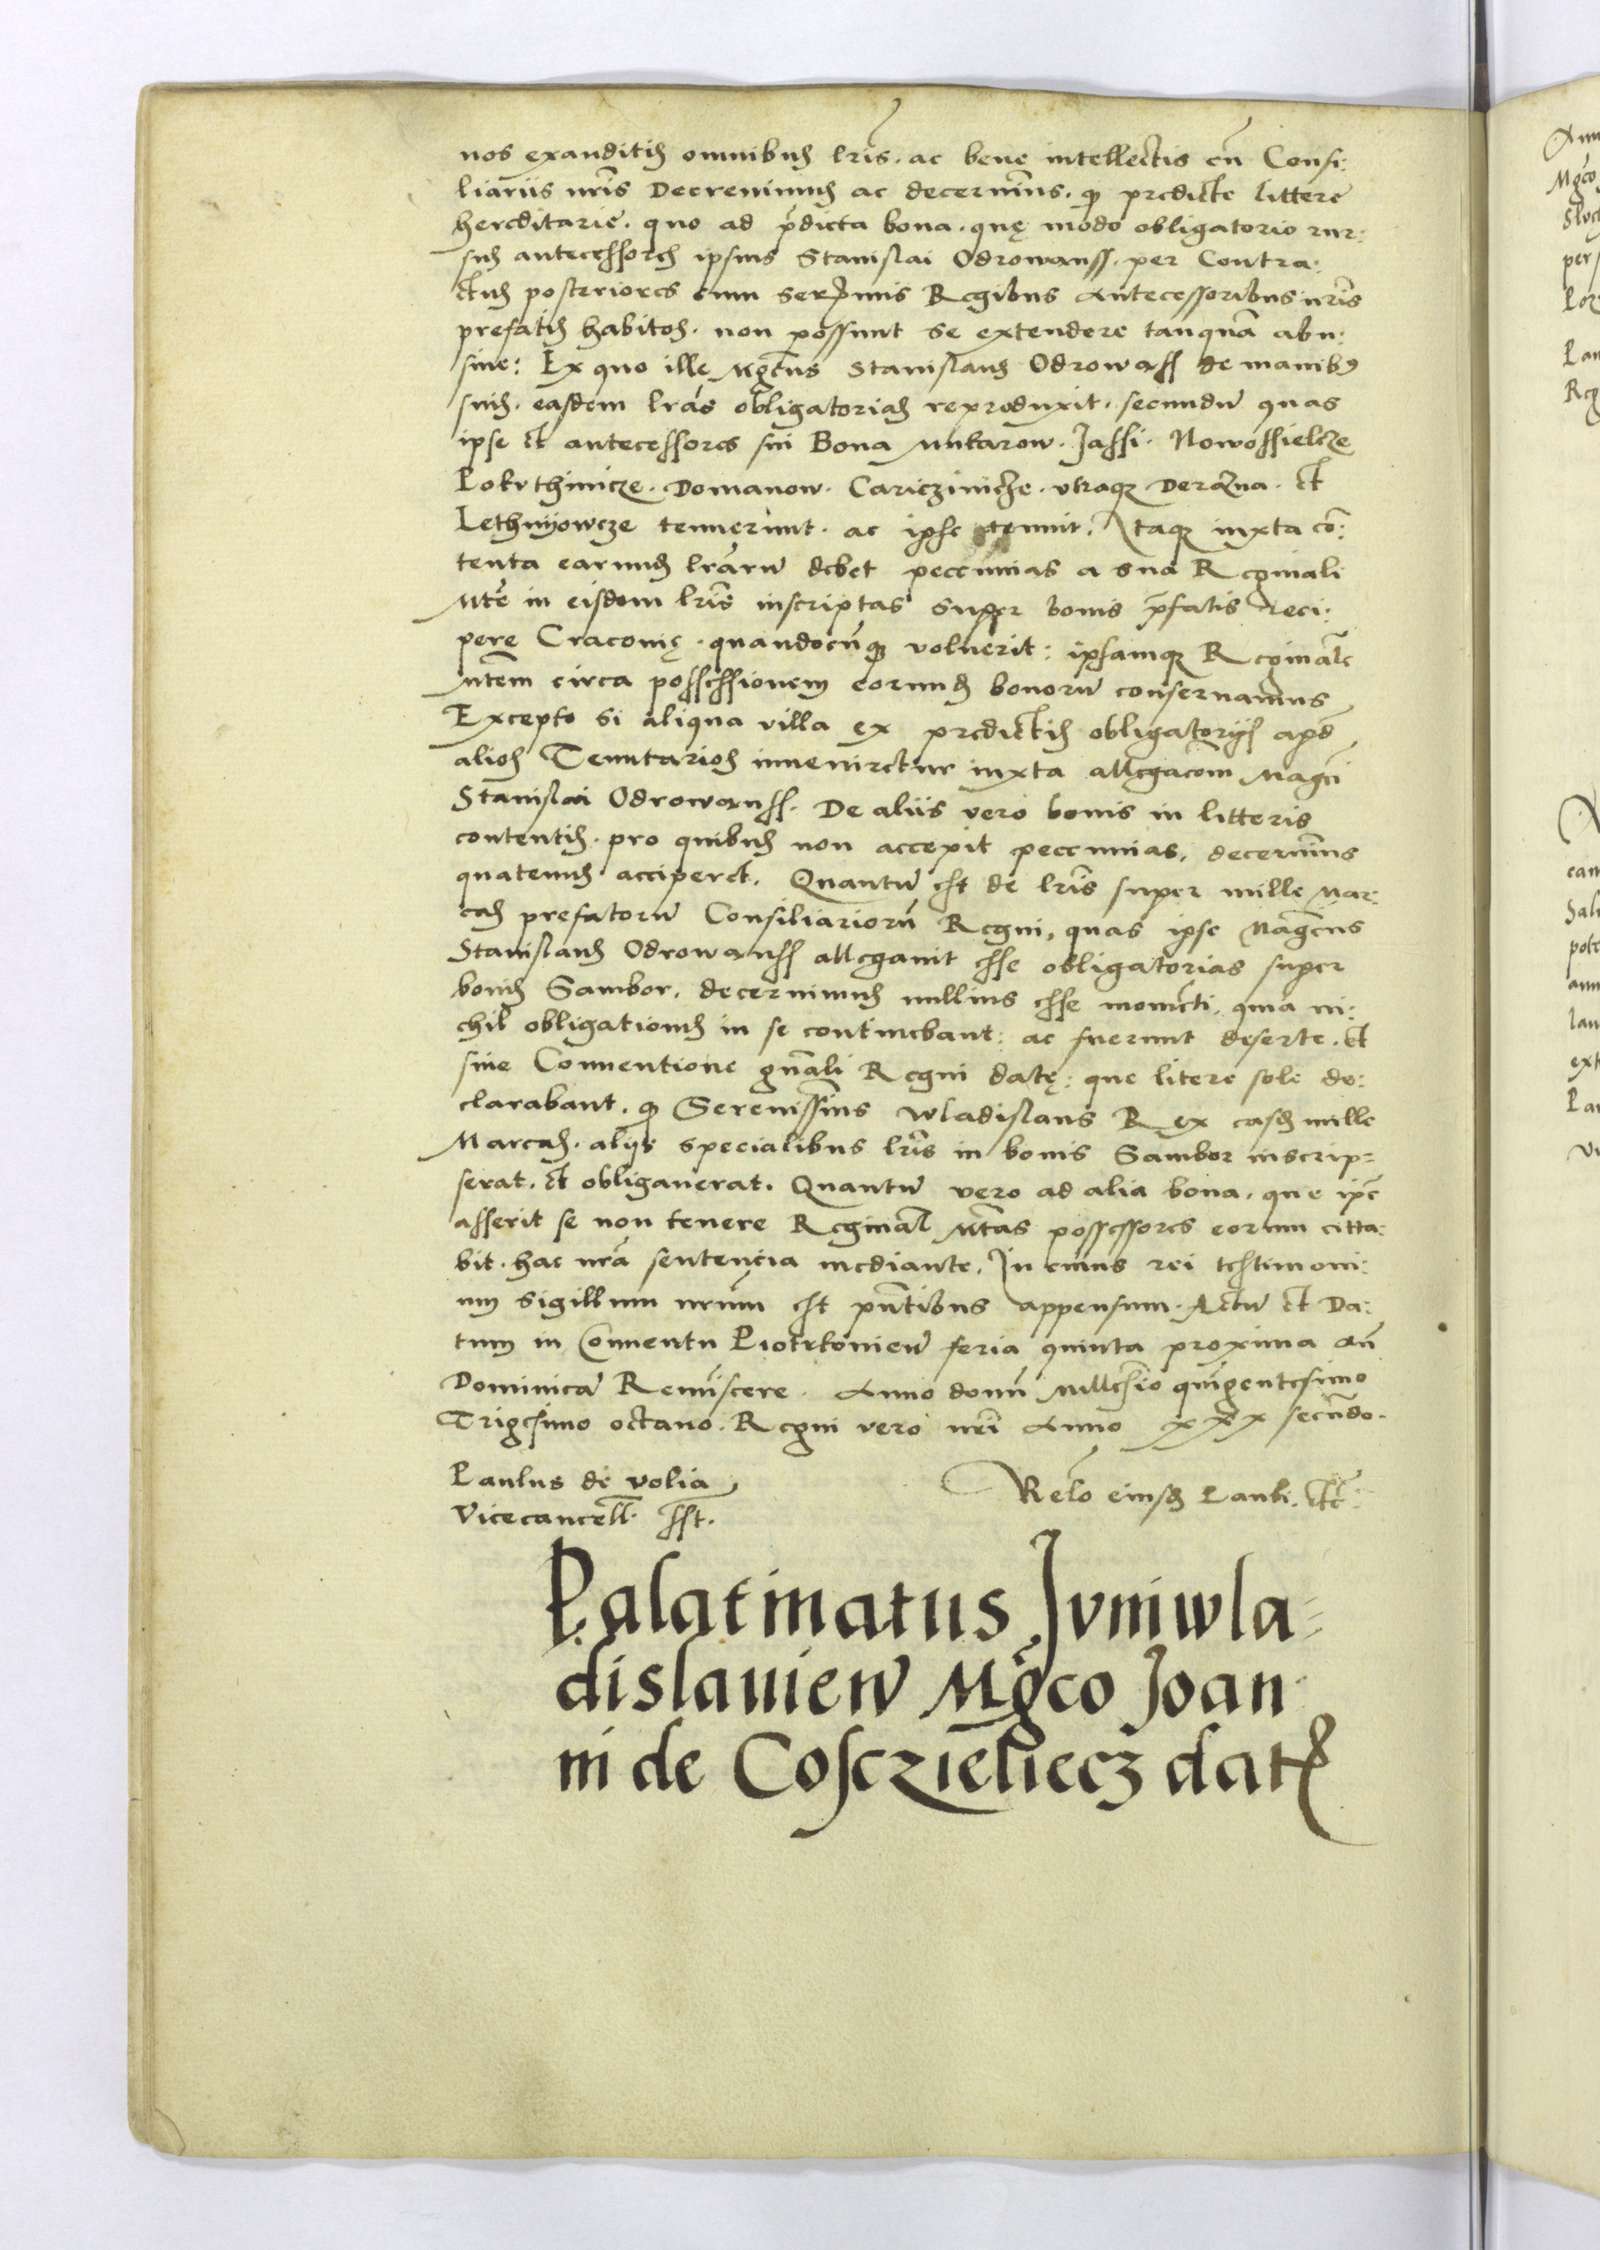 nos exauditis omnibus lr̃is. ac bene intellectis cũ Consi:
liariis nr̃is Decrevimus ac decernim̃us. ꝙ predicte littere
hereditarie. quo ad p̃dicta bona. quę modo obligatorio rur:
sus antecessores ipsius Stanislai Odrowanss. per Contra:
ctus posteriores cum Ser̃mis Regibus Antecessoribus nr̃is
prefatis habitos. non possunt se extendere tanquã abu:
sive: Ex quo ille Mg̃cus Stanislaus Odrowąss de manibꝰ
suis. easdem lr̃as obligatorias reproduxit. secundũ quas
ipse et antecessores sui Bona Mukarow. Jassi. Nowossielcze
Pokuthinicze. Domanow. Cariczincze. utraqꝫ Deraζna. et
Lethnijowcze tenuerunt. ac ipse tenuit. Itaqꝫ iuxta cõ:
tenta earund̃ lr̃arũ debet peccunias a sua Reginali
Mt̃e in eisdem lr̃is inscriptas super bonis p̃fatis reci:
pere Cracovię. quandocũqꝫ voluerit: ipsamqꝫ Reginal̃e
Mt̃em circa possessionem eorund̃ bonorũ conservamus
Excepto si aliqua villa ex predictis obligatorijs apd̃
alios Tenutarios inveniretur iuxta allegac̃om Magc̃i
Stanislai Odrowanss. De aliis vero bonis in litteris
contentis. pro quibus non accepit peccunias, decernim̃us
quatenus acciperet. Quantũ est de lr̃is super mille Mar:
cas prefatorũ Consiliariorũ Regni, quas ipse Mag̃cus
Stanislaus Odrowanss allegavit esse obligatorias super
bonis Sambor. decernimus nullius esse momẽti. quia ni:
chil obligationis in se continebant: ac fuerunt deserte. et
sine Conventione gñali Regni datę: que litere sole de:
clarabant. ꝙ Serenissim̃us Wladislaus Rex easd̃ mille
Marcas. alijs specialibus lr̃is in bonis Sambor inscrip=
serat. et obligaverat. Quantũ vero ad alia bona. que ip̃e
asserit se non tenere Reginal̃ Mt̃as possessores eorum citta:
bit. hac nr̃a sentencia mediante. In cuius rei testimoni:
um sigillum nr̃um est pñtibus appensum. Actũ et Da:
tum in Conventu Piotrkovieñ feria quinta proxima añ
Dominicã Remĩscere. Anno domĩ Milles̃io quĩgentesimo
Trigesimo octavo. Regni vero nr̃i Anno xxx secũdo.
Paulus de volia
Vicecancell̃. sst.
Rel̃o eiusd̃ Pauli. etc̃:
Palatinatus Juniwla=
dislavieñ Mg̃co Joan
ni de Coscziel̃iecz dat̃